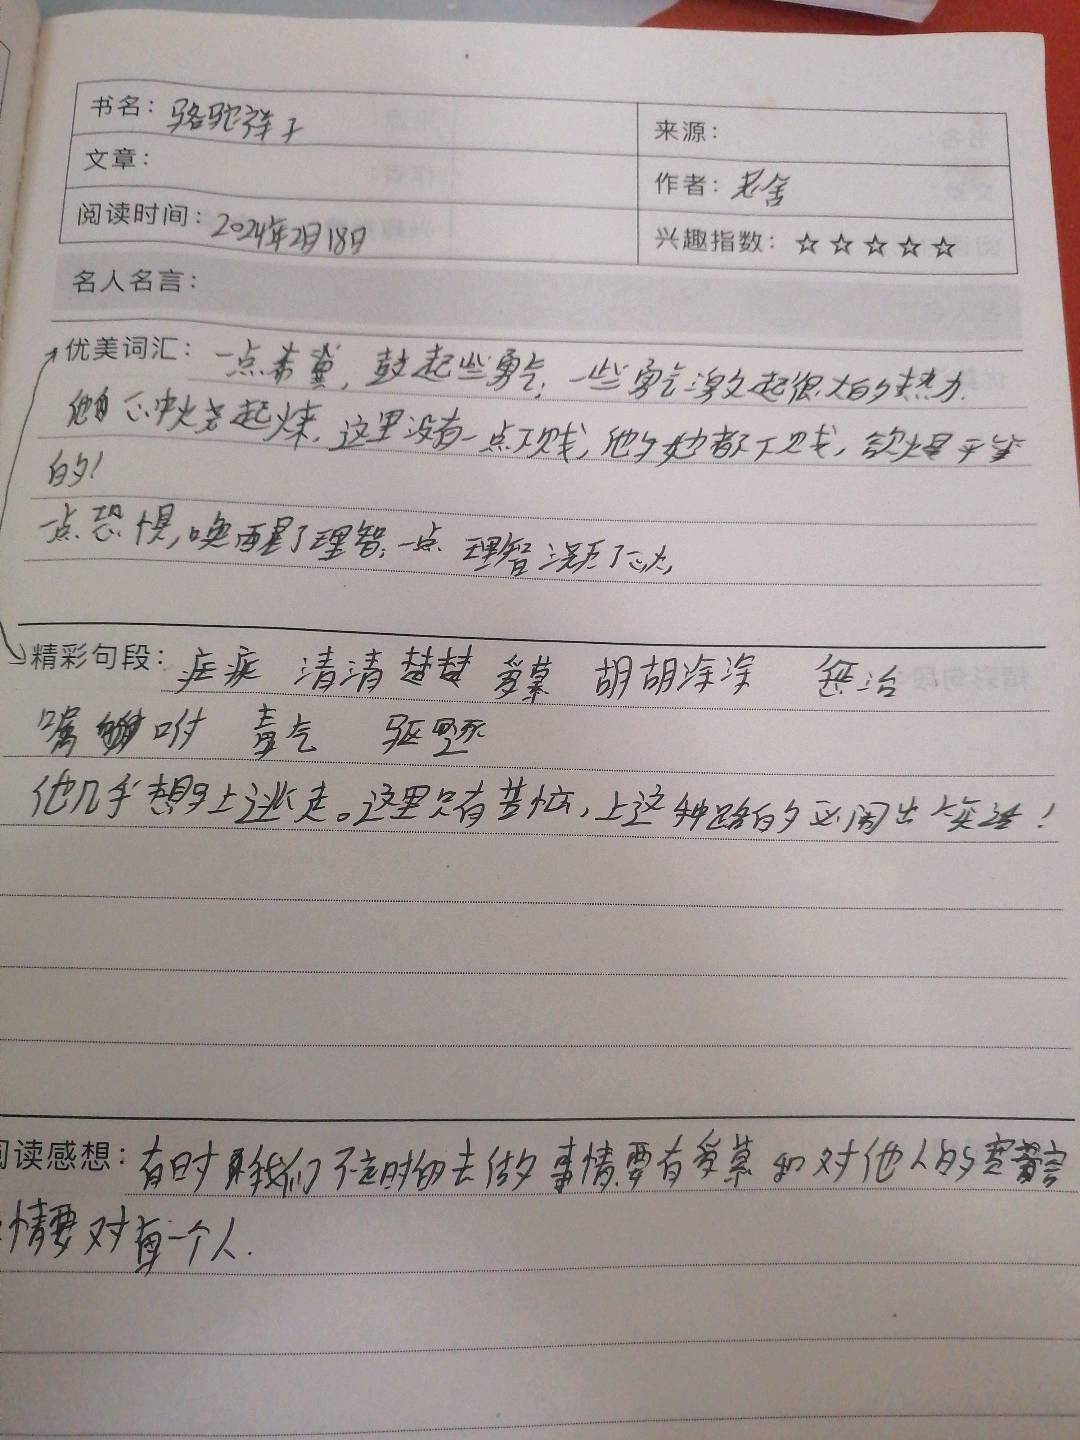 书名：骆驼祥子
来源：
文章：
作者：老舍
阅读时间：2024年2月18日
兴趣指数：☆☆☆☆☆
名人名言：
优美词汇：一点希冀，鼓起些勇气；一些勇气激起很大的热力.
心中烧起来，这里没有一点下贱，他与她都不下贱，欲火是平等
的！
一点恐惧，唤醒了理智；一点理智浇灭了心火，
精彩句段：疟疾 清清楚楚 爱慕 胡胡涂涂 惩治
嘱咐 毒气 驱逐
他几乎想马上逃走。这里只有苦恼，上这种路的必闹出笑话！
阅读感想：有时我们不定时的去做 事情要有爱慕和对他人的
情要对每一个人.